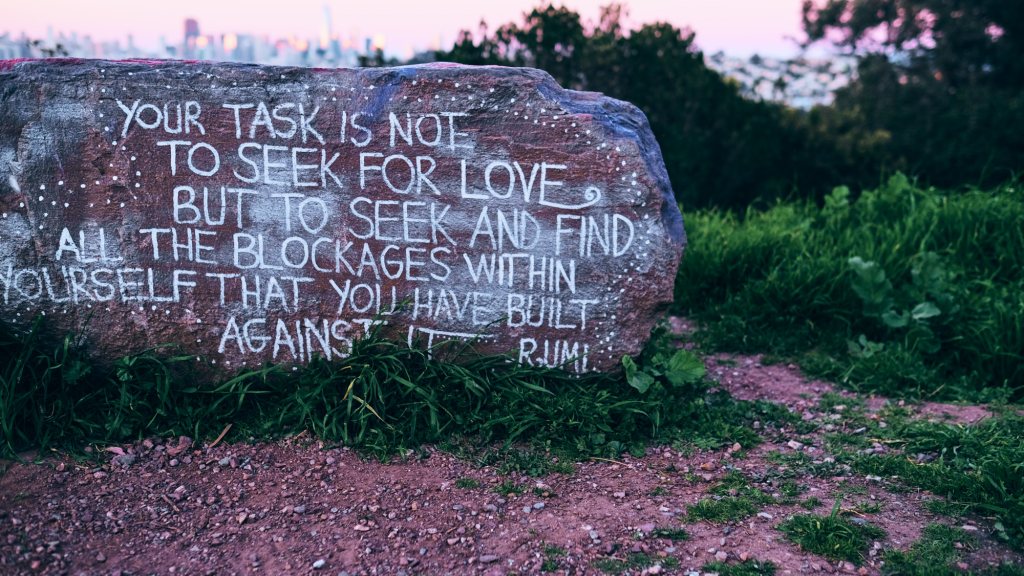 YOUR TASK IS NOT
TO SEEK FOR LOVE
BUT TO SEEK AND FIND
ALL THE BLOCKAGES WITHIN
YOURSELF THAT YOU HAVE BUILT
AGAINST IT
RUMI